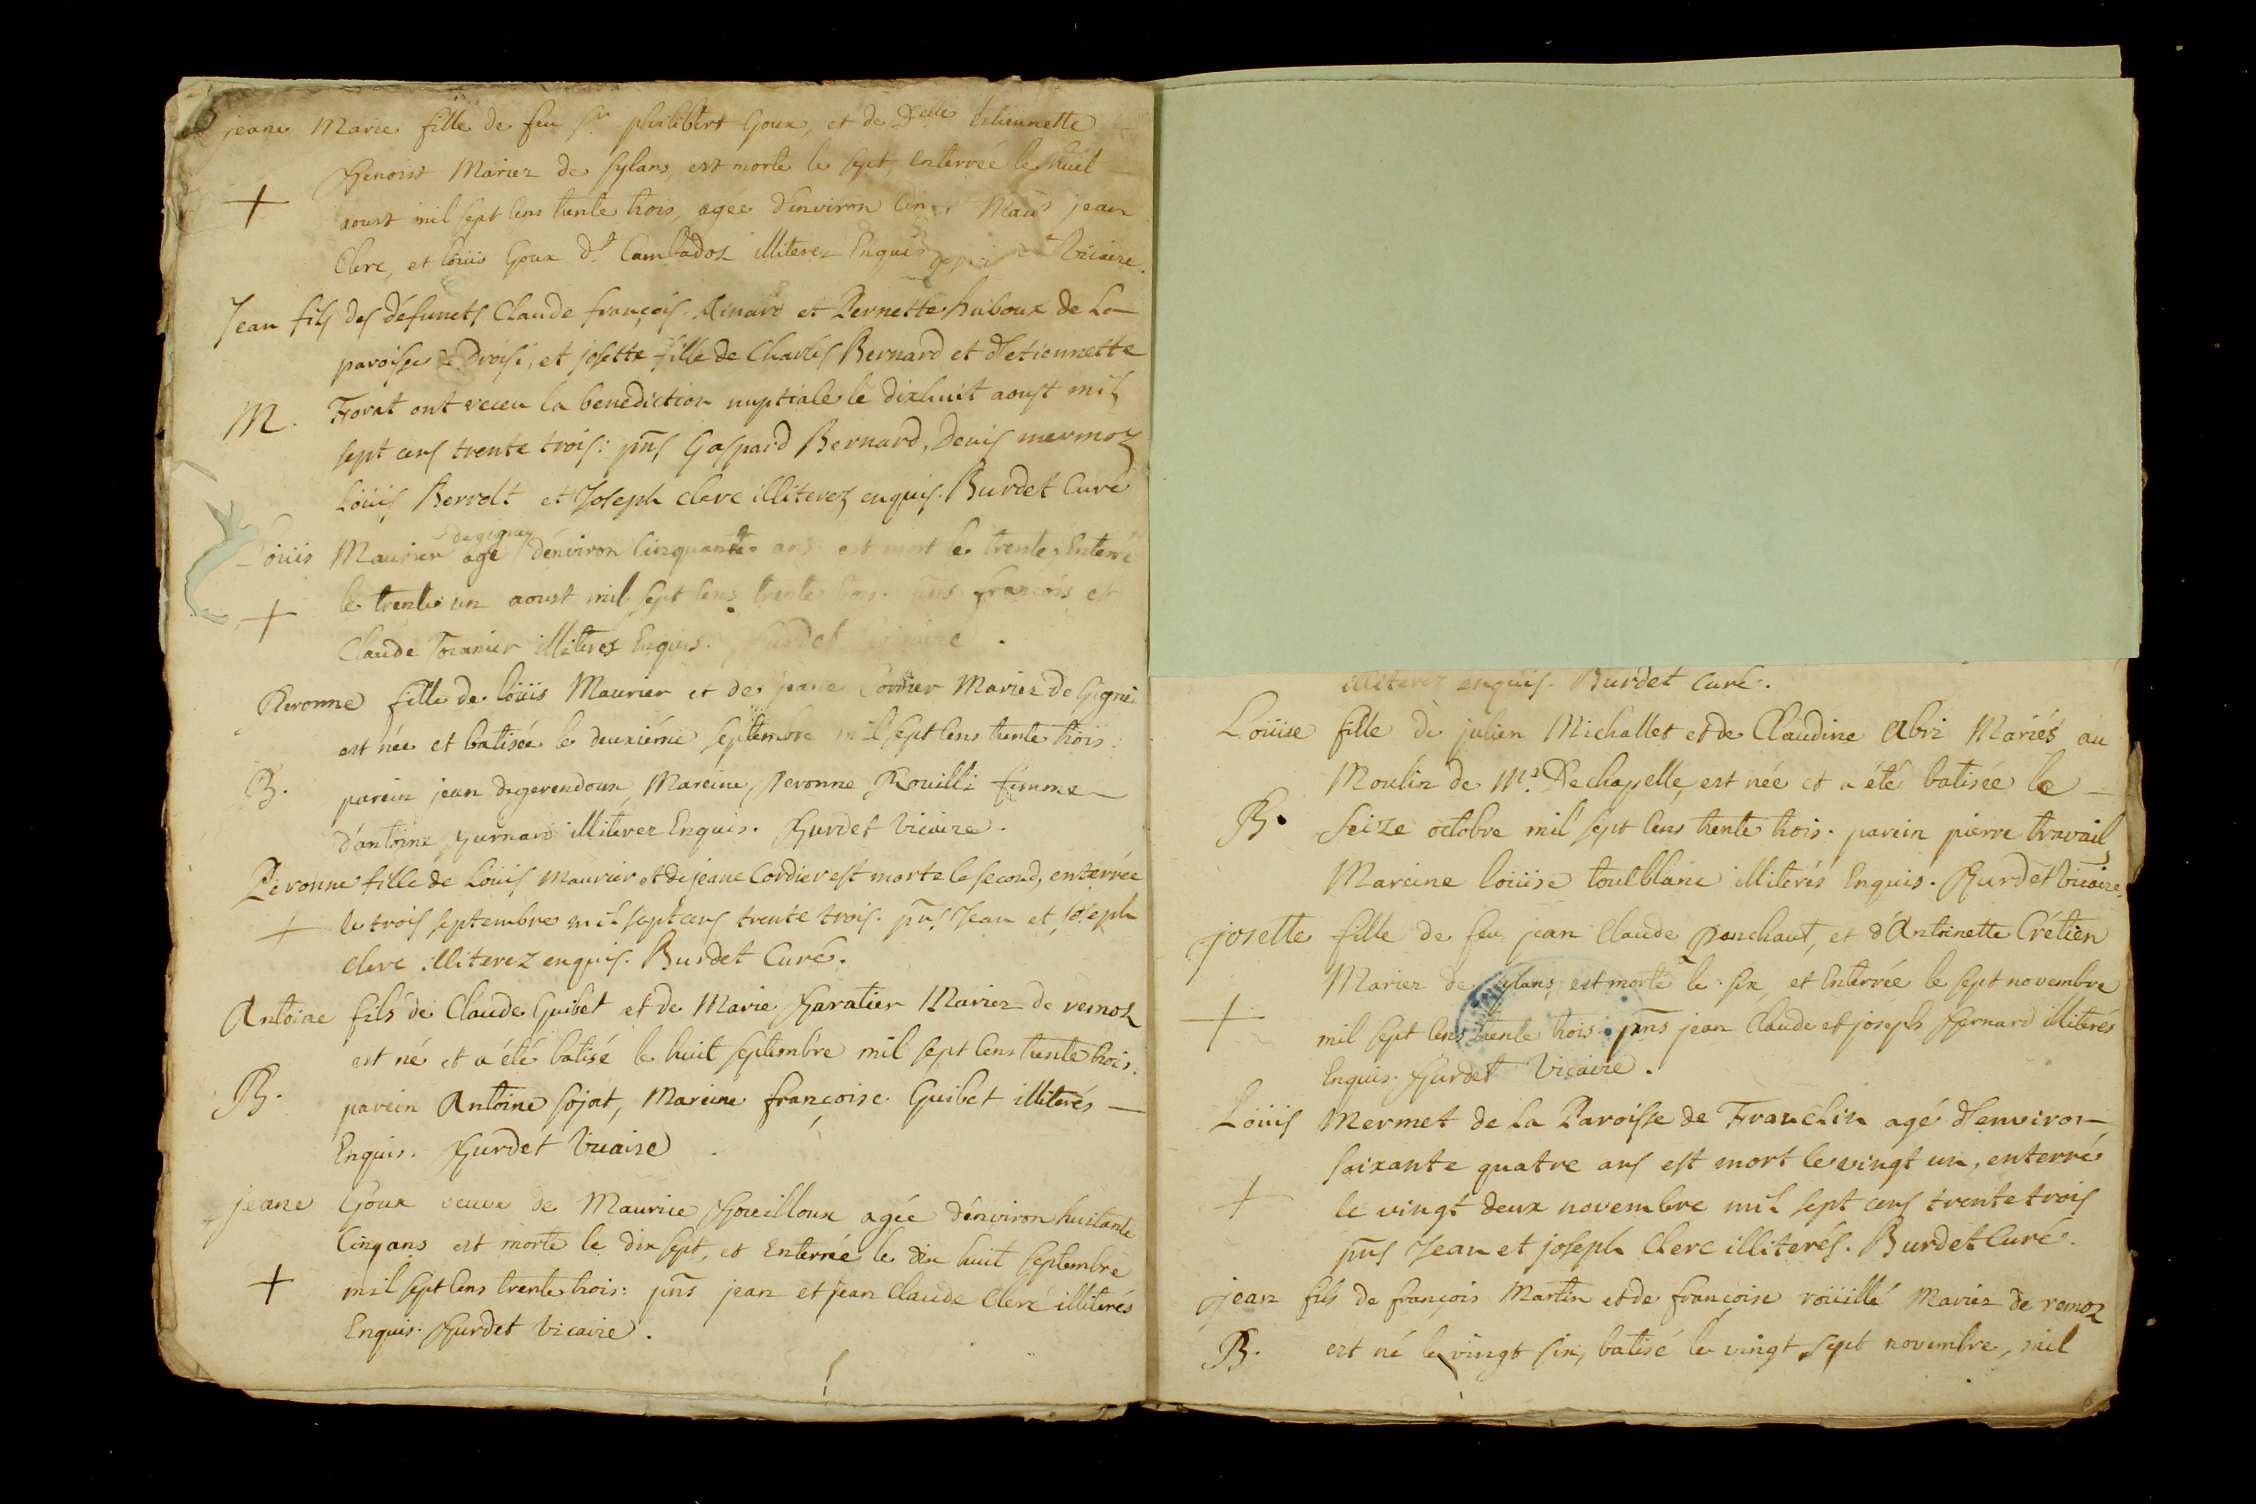 jeane Marie fille de feu Sr. philibert Goux, et de Delle Estiennette
Benoist Mariez de sylans, est morte le sept, enterrée le huit
+ aoust mil sept cens trente trois, agée d'environ jean
Clerc, et loüis Goux dt. Cambadoz illiterez Enquis vicaire.
Jean fils des défuncts Claude françois et Pernette huboux de La
paroisse de Droisi, et josette fille de Charles Bernard et d'etiennette
M. Forat ont receu la benediction nuptiale le dixhuit aoust mil
sept cens trente trois: pñs Gaspard Bernard, Denis mermoz
Loüis Berrolt et Joseph clerc illiterez enquis. Burdet Curé
de gigney
Loüis Maurier agé d'environ cinquante ans est mort le trente, Enterré
+ le trente un aoust mil sept cens trente trois. pñs françois et
Claude Toranier illiterez Enquis. Burdet vicaire.
Peronne fille de loüis Maurier et de jeane Cordier Mariez de Gigni
est née et batisée le deuxième septembre mil sept cens trente trois.
B. parein jean degerendoux, Mareine, Peronne Rouilli femme
d'antoine Burnard illiterez Enquis. Burdet vicaire.
Peronne fille de Loüis maurier et de jeane Cordier est morte le second, enterrée
+ le trois septembre mil sept cens trente trois. pñs Jean et joseph
clerc illiterez enquis. Burdet Curé.
Antoine fils de Claude Guibet et de Marie Baratier Mariez de vernoz
est né et a été batisé le huit septembre mil sept cens trente trois.
B. parein Antoine sojat, Mareine françoise Guibet illiterés
Enquis. Burdet vicaire
jeane Goux veuve de Maurice Bouilloux agée d'environ huitante
cinq ans est morte le dix sept, et Enterrée le dix huit septembre
+ mil sept cens trente trois: pñs jean et jean Claude Clerc illiterés
Enquis. Burdet vicaire.
illiterez enquis. Burdet curé.
Loüise fille de julien Michallet et de Claudine Abri Mariés au
Moulin de Mr. Dechapelle, est née et a été batisée le
B. seize octobre mil sept cens trente trois. parein pierre travail,
Mareine loüise toulblanc illiterés Enquis. Burdet vicaire.
josette fille de feu jean Claude Ponchaut, et d'Antoinette Crétien
Mariez de sylans, est morte le six, et Enterrée le sept novembre
+ mil sept cens trente trois. pñns jean Claude et joseph Bernard illiterés
Enquis. Burdet vicaire.
Loüis Mermet de La Paroisse de Franclin agé d'environ
soixante quatre ans est mort le vingt un, enterré
+ le vingt deux novembre mil sept cens trente trois
pñs Jean et joseph Clerc illiterés. Burdet Curé.
jean fils de françois Martin et de françoise roüillé Mariez de remoz
B. est né le vingt six, batisé le vingt sept novembre, mil